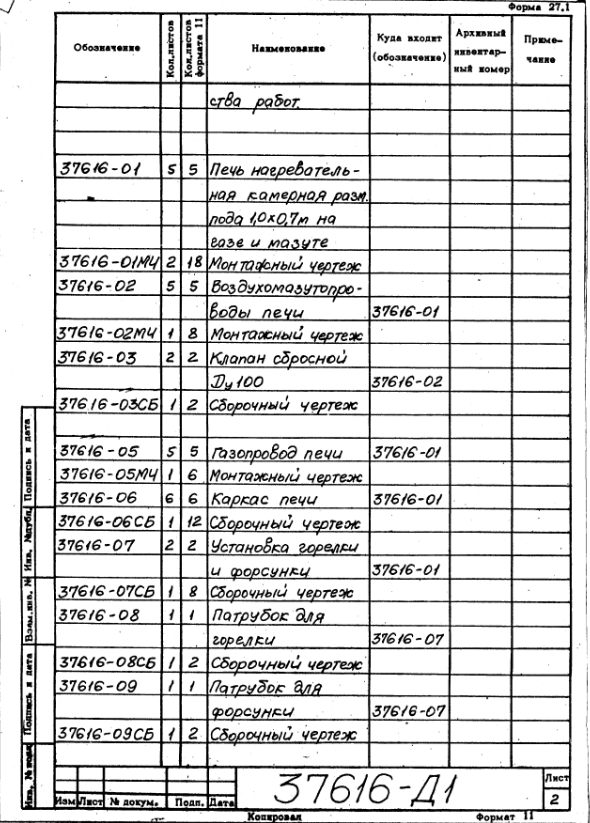 Форма 27.1
Обозначение Кол.листов Кол.листов формата 11 Наименование Куда входит (обозначение) Архивный инвентар-ный номер Приме-чание
ства работ.
37616-01 5 5 Печь нагреватель-
ная камерная разм.
пода 1,0х0,7м на
газе и мазуте
37616-01МЧ 2 18 Монтажный чертеж
37616-02 5 5 Воздухомазутопро-
воды печи 37616-01
37616-02МЧ 1 8 Монтажный чертеж
37616-03 2 2 Клапан сбросной
Ду100 37616-02
37616-03СБ 1 2 Сборочный чертеж
37616-05 5 5 Газопровод печи 37616-01
37616-05МЧ 1 6 Монтажный чертеж
37616-06 6 6 Каркас печи 37616-01
37616-06СБ 1 12 Сборочный чертеж
37616-07 2 2 Установка горелки
и форсунки 37616-01
37616-07СБ 1 8 Сборочный чертеж
37616-08 1 1 Патрубок для
горелки 37616-07
37616-08СБ 1 2 Сборочный чертеж
37616-09 1 1 Патрубок для
форсунки 37616-07
37616-09СБ 1 2 Сборочный чертеж
Подпись и дата
Инв. №дубл.
Взам.инв. №
Подпись и дата
Инв. № подл.
Изм Лист № докум. Подп. Дата
37616-Д1
Лист
2
Копировал Формат 11